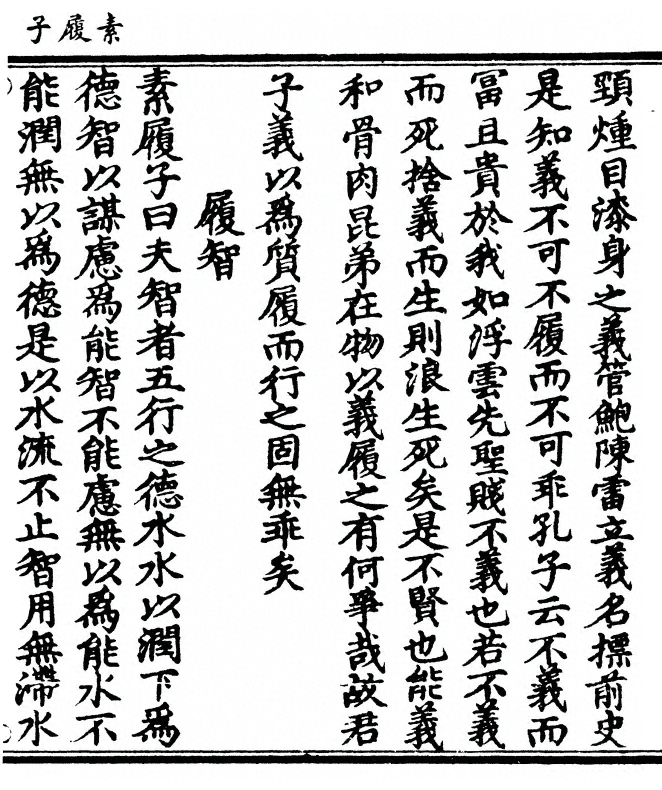 素履子
頸煄目漆身之義管鮑陳雷立義名摽前史
是知義不可不履而不可乖孔子云不義而
冨且貴於我如浮雲先聖賤不義也若不義
而死捨義而生則浪生死矣是不賢也能義
和骨肉昆弟在物以義履之有何爭哉故君
子義以爲質履而行之固無乖矣
履智
素履子曰夫智者五行之德水水以潤下爲
德智以謀慮爲能智不能慮無以爲能水不
能潤無以爲德是以水流不止智用無滯水